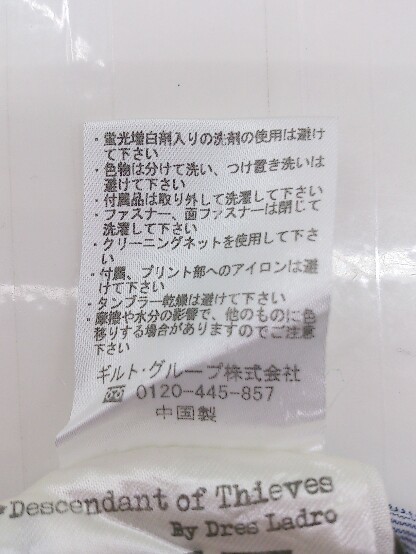 ・蛍光増白剤入りの洗剤の使用は避け
て下さい
・色物は分けて洗い、つけ置き洗いは
避けて下さい
・付属品は取り外して洗濯して下さい
・ファスナー、面ファスナーは閉じて
洗濯して下さい
・クリーニングネットを使用して下さ
い
・付属、プリント部へのアイロンは避
けて下さい
・タンブラー乾燥は避けて下さい
・摩擦や水分の影響で、他のものに色
移りする場合がありますのでご注意
下さい
ギルト・グループ株式会社
0120-445-857
中国製
Descendant of Thieves
By Dres Ladro